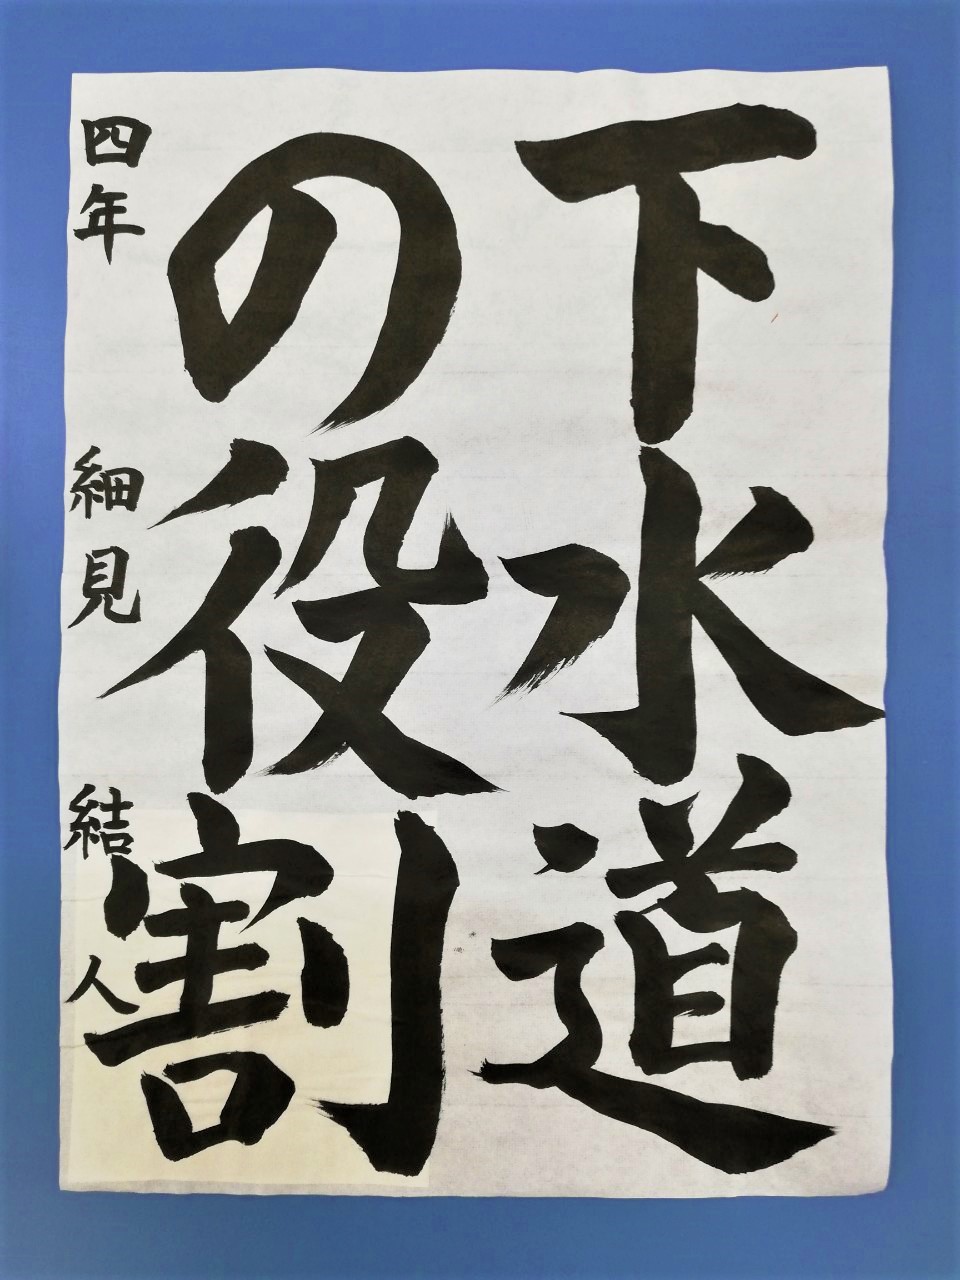 下水道
の役割
四年 細見 結人